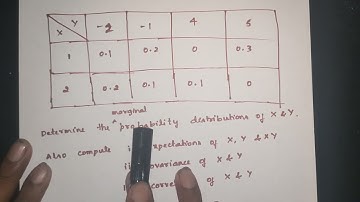 X Y -2 -1 4 5
1 0.1 0.2 0 0.3
2 0.2 0.1 0.1 0
marginal
Determine the ^ probability distributions of X & Y.
Also compute expectations of X, Y & XY
covariance of X & Y
of X & Y